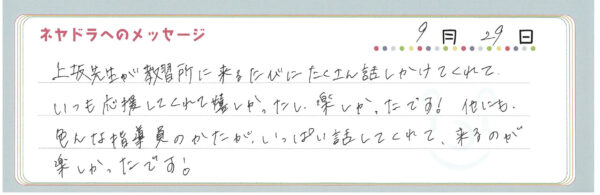 ネヤドラへのメッセージ
9月29日
上坂先生が教習所に来るたびにたくさん話しかけてくれて
いつも応援してくれて嬉しかったし、楽しかったです! 他にも
色んな指導員のかたが、いっぱい話してくれて、来るのが
楽しかったです!